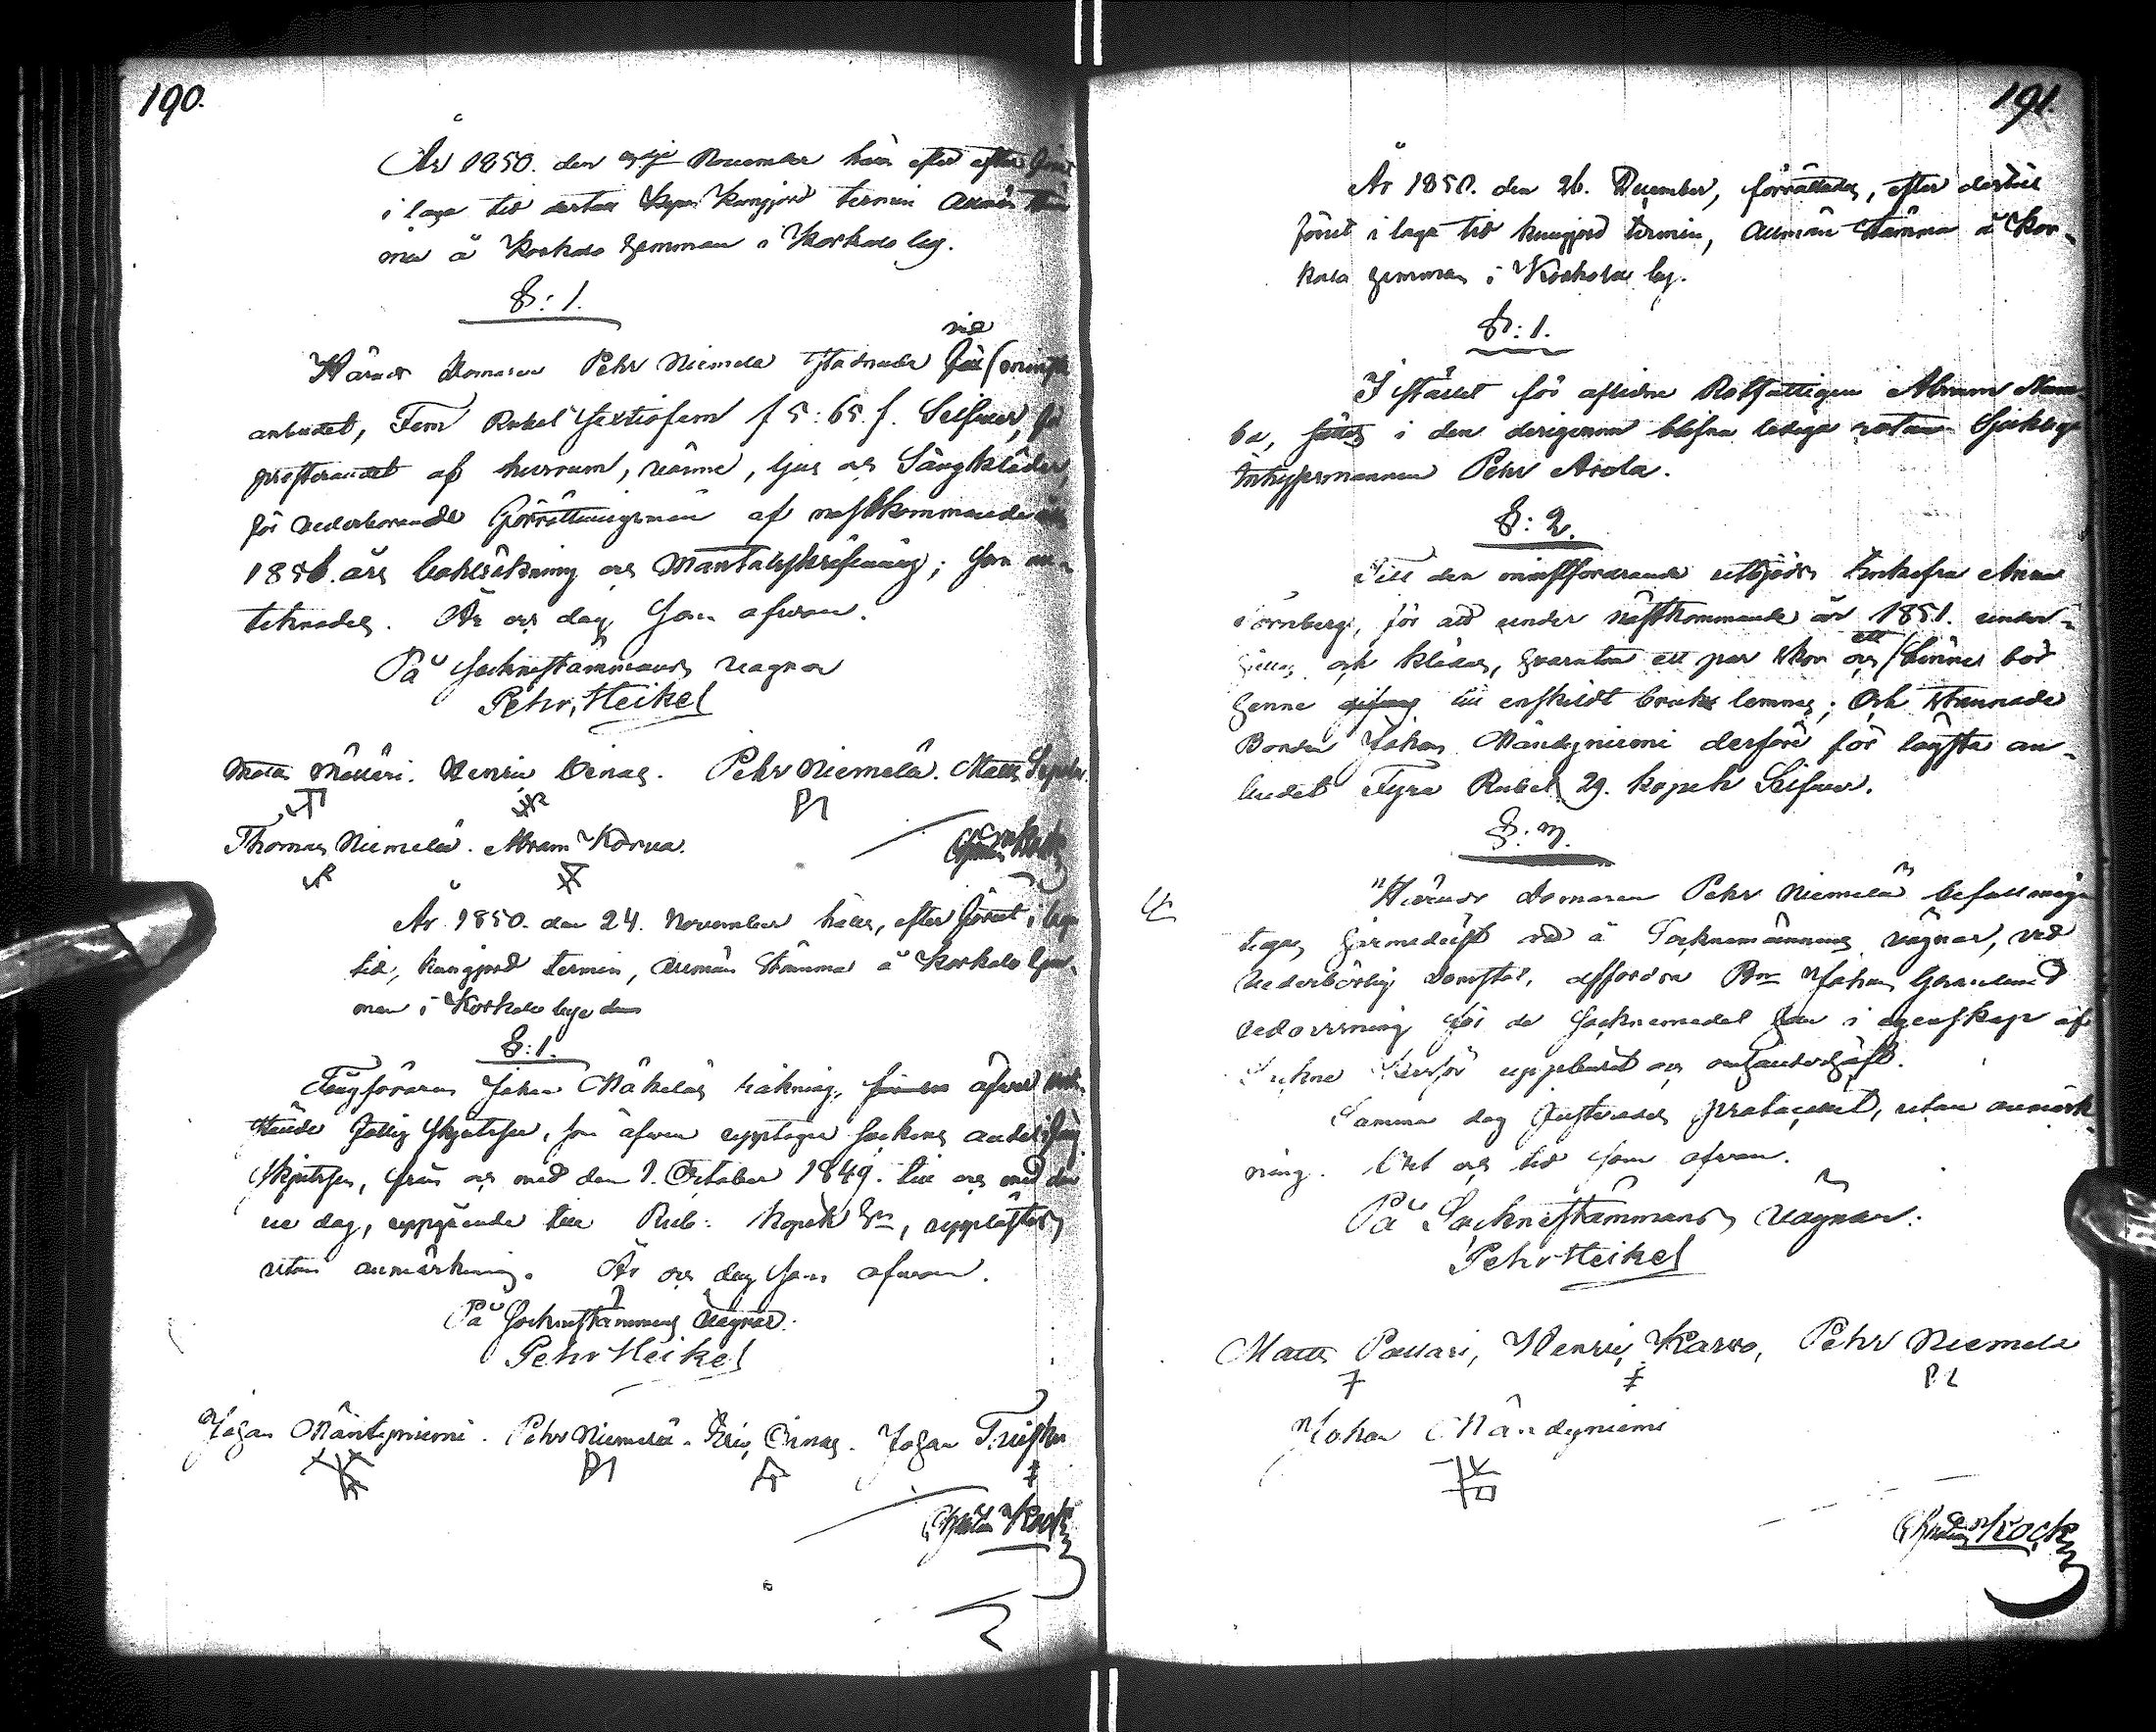 190.
År 1850. den November hölls efter
i laga tid dertill kungjord termin Allmän
ma å Korkalo hemman i Korkalo by.
§: 1.
vid
Härads Domaren Pehr Niemelä stadnade för minsta
anbudet, Fem Rubel sextiofem / 5: 65. /. Silfver, för
presterandet af husrum, värme, ljus och Sängkläder,
för vederbörande Förrättningsmän af nästkommande
1851. års bokräkning och Mantalsskrifning; som an-
tecknades. År och dag som ofwan.
På Sockne stämmans vägnar
Pehr Heikel
Matts Mälläri. Henric Oinas. Pehr Niemelä. Matts
Thomas Niemelä. Abram Korva.
Christian Kock
År 1850. den 24. November hölls, efter förut i laga
tid, kungjord termin, allmän Stämma å Korkalo hem-
man i Korkalo by
§: 1.
Tingföraren Johan Mäkeläs räkning, öfver
fattig skjutsen, som äfven upptager Sockens andel i
skjutsen, från och med den 1. October 1849. till och med denna
dag, uppgående till Rub: Kopek Sr, upplästes
utan anmärkning. År och dag som ofwan.
På Socknestämmans vägnar.
Pehr Heikel
Johan Mäntyniemi. Pehr Niemelä. Eric Oinas. Johan
Christian Kock
191.
År 1850. den 26. December, förrättades, efter dertill
förut i laga tid kungjord termin, Allmän Stämma å Kor-
kalo hemman i Korkalo by.
§: 1.
I stället för aflidne Rotfattigen Abram
ba, sattes i den derigenom blifna lediga rotan Sjuklige
Inhysesmannen Pehr Arola.
§: 2.
Till den minstfordrande utbjöds Enkefru Anna
Törnberg, för att under nästkommande år 1851. under-
hållas och klädas, hvarutom ett par skor och ett linne bör
henne till enskildt bruk lemnas; Och stannade
Bonden Johan Mändyniemi derföre för lägsta an-
budet Fyra Rubel 29. kopek Silfver.
§: 3.
Härads Domaren Pehr Niemelä befullmäg-
tigas härmedelst att å Socknemännens vägnar, vid
vederbörlig domstol, affordra Bn Johan
redovisning för de Socknemedel han i egenskap af
uppburit och omhänderhaft.
Samma dag justerades protocollet, utan anmärk-
ning. Ort och tid som ofwan.
På Socknestämmans vägnar.
Pehr Heikel
Matts Pallari, Henric Karvo, Pehr Niemelä
Johan Mändyniemi
Christian Kock